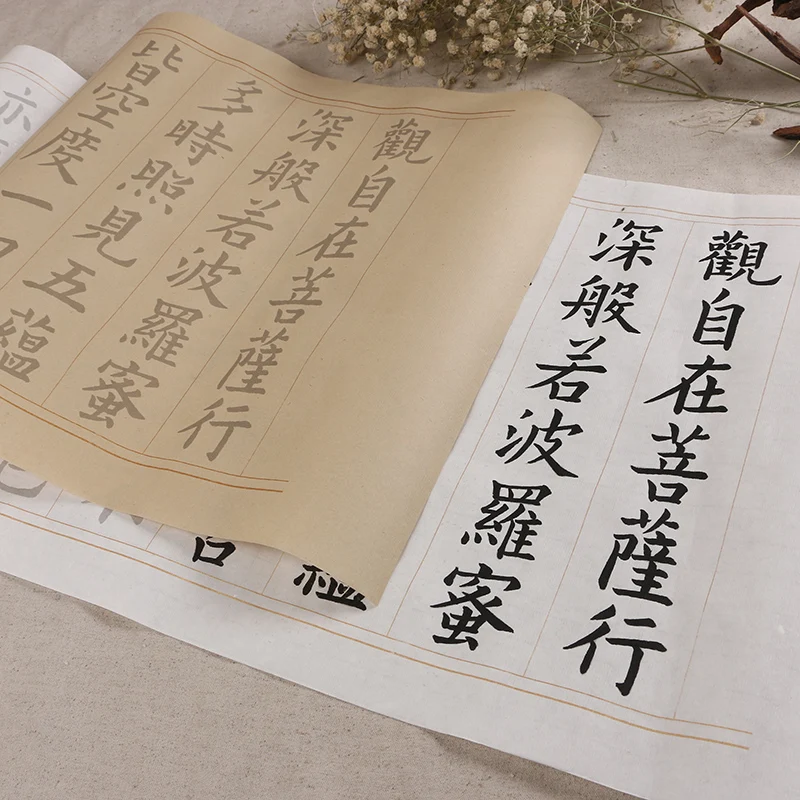 觀自在菩薩行
深般若波羅蜜
觀自在菩薩行
深般若波羅蜜
多時照見五蘊
皆空度一
亦